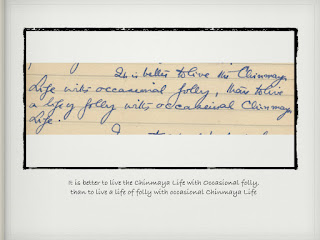 It is better to live the Chinmaya
Life with occasional folly, than to live
a life of folly with occasional Chinmaya
Life.
It is better to live the Chinmaya Life with Occasional folly,
than to live a life of folly with occasional Chinmaya Life